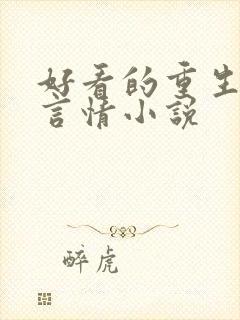 好看的重生
言情小説
醉虎